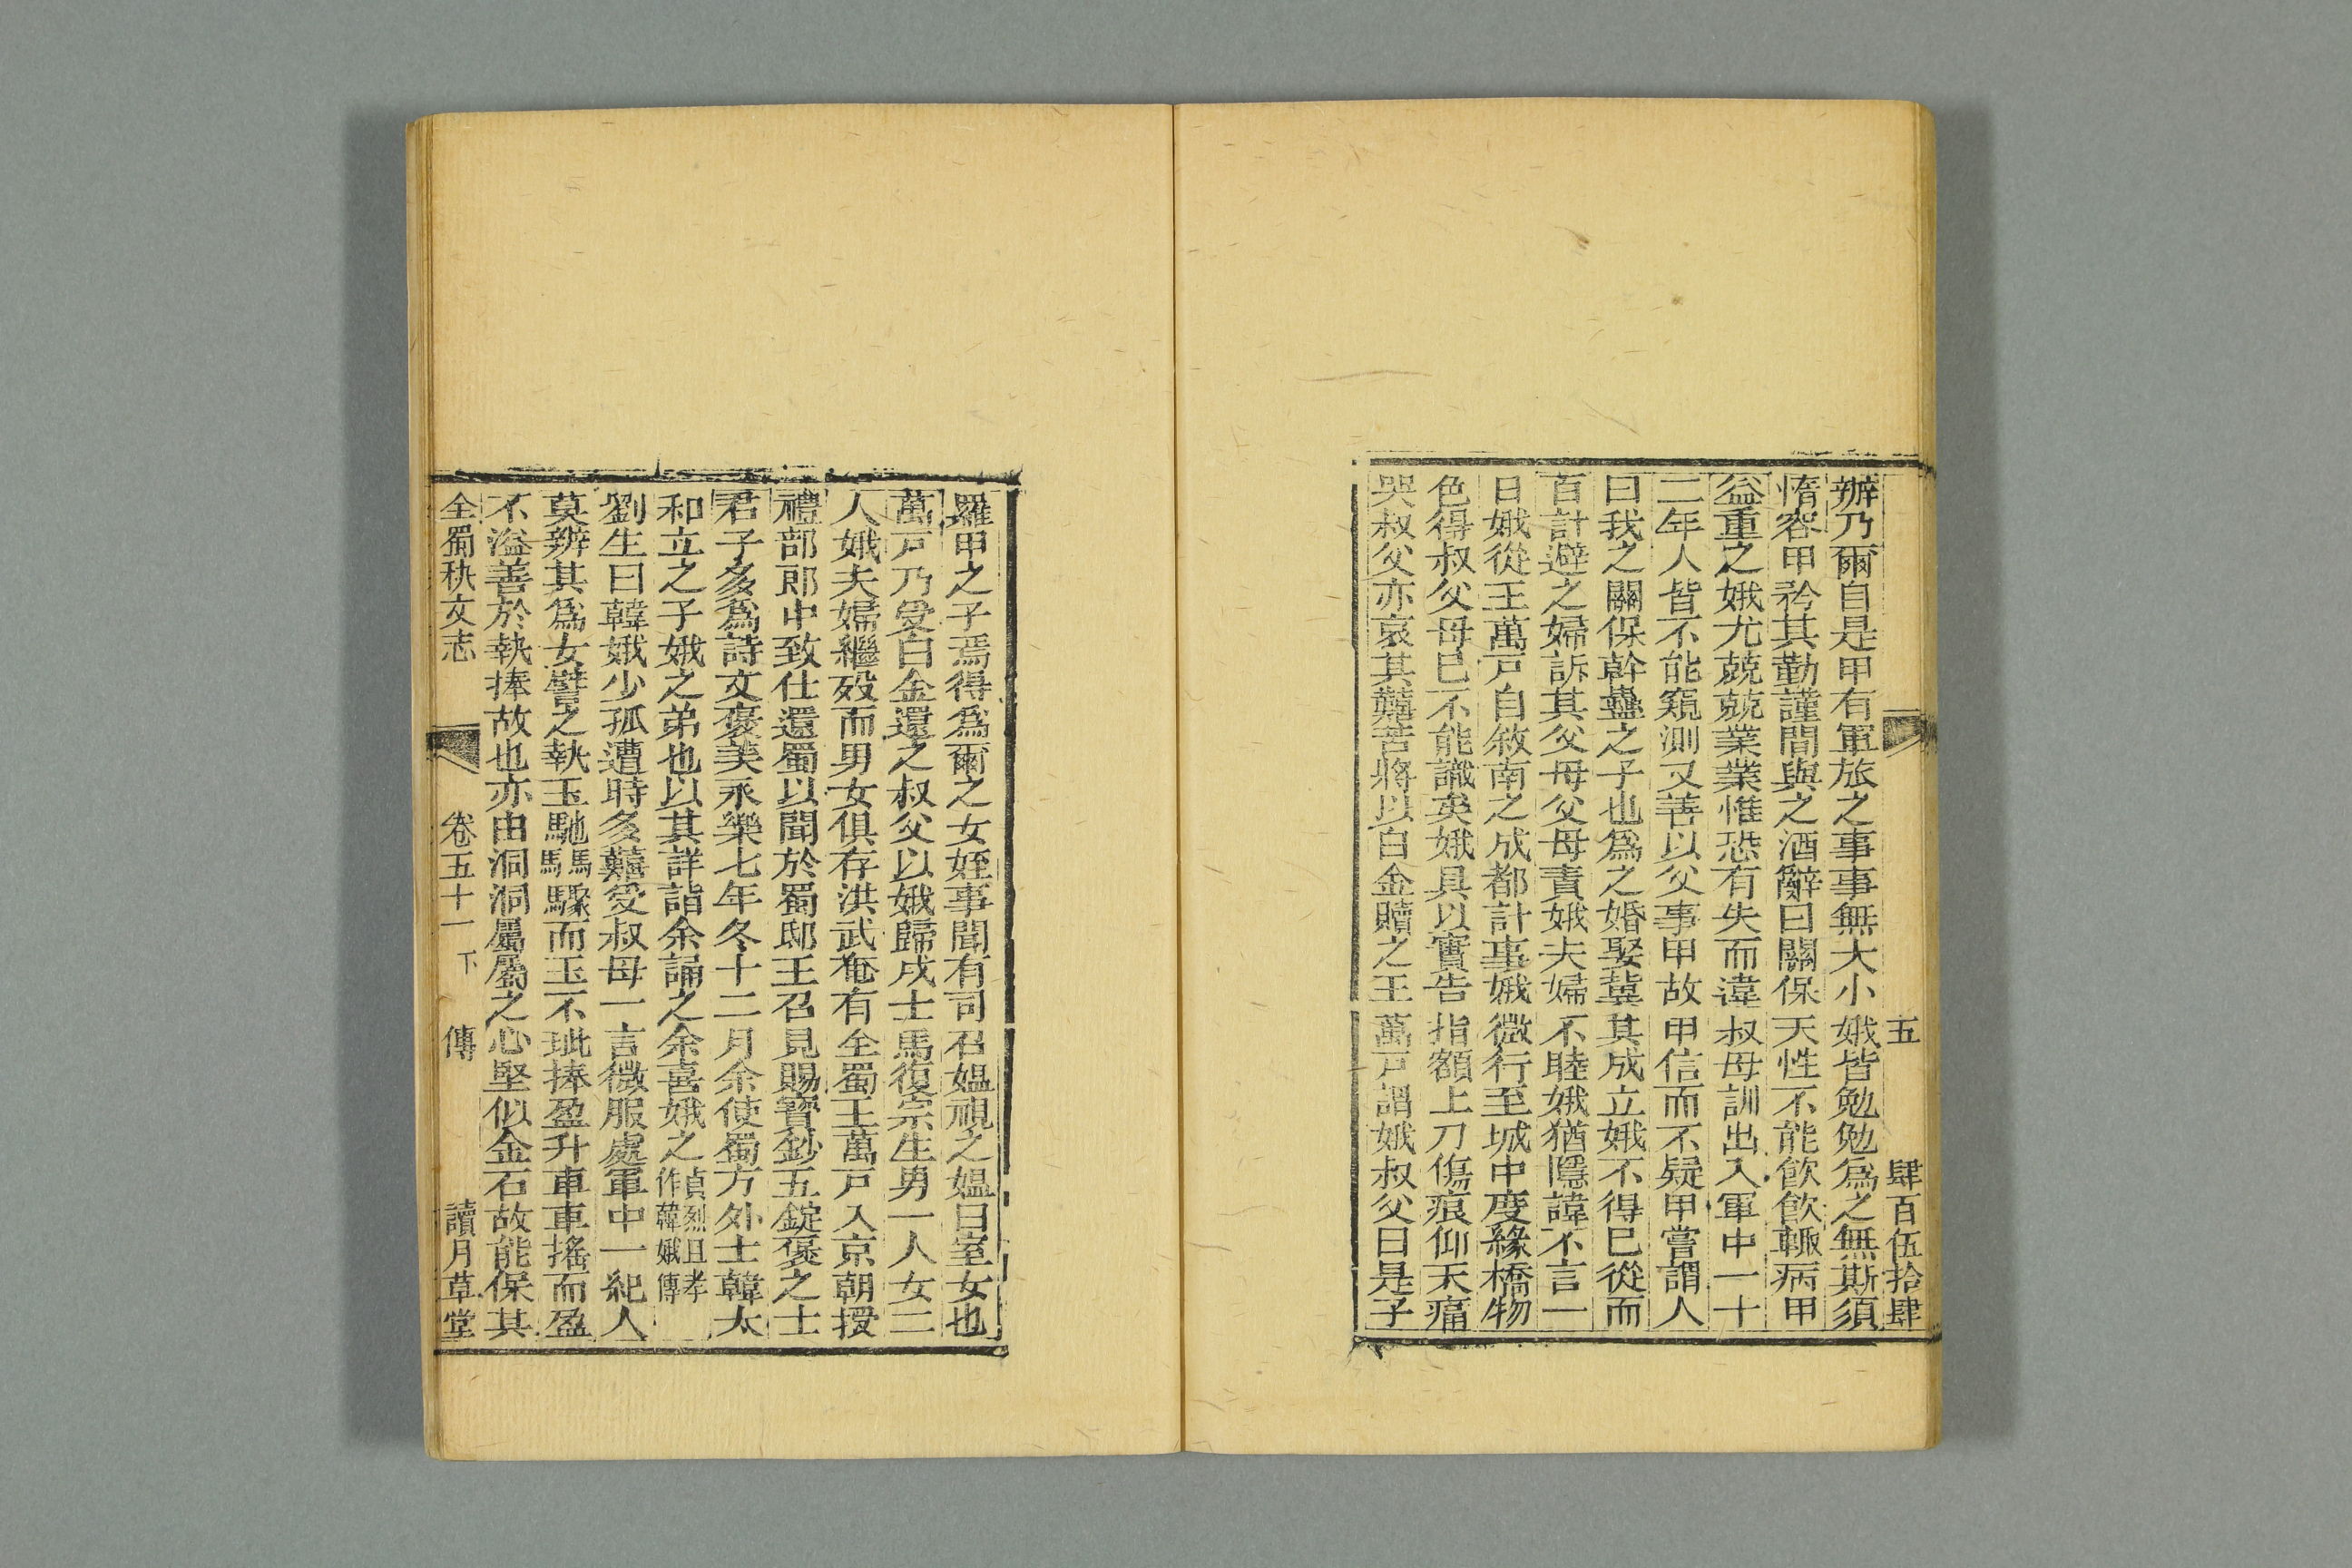 五 肆百伍拾肆
辦乃爾自是甲有軍旅之事事無大小娥皆勉勉爲之無斯須
惰容甲矜其勤謹間與之酒辭曰關保天性不能飲飲輒病甲
益重之娥尤兢兢業業惟恐有失而違叔母訓出入軍中一十
二年人皆不能窺測又善以父事甲故甲信而不疑甲嘗謂人
曰我之關保幹蠱之子也爲之婚娶冀其成立娥不得已從而
百計避之婦訴其父母父母責娥夫婦不睦娥猶隱諱不言一
日娥從王萬戸自敘南之成都計事娥微行至城中度緣橋物
色得叔父母已不能識矣娥具以實告指額上刀傷痕仰天痛
哭叔父亦哀其囏苦將以白金贖之王萬戸謂娥叔父曰是子
羅甲之子焉得爲爾之女姪事聞有司召媼視之媼曰室女也
萬戸乃受白金還之叔父以娥歸戍士馬復宗生男一人女二
人娥夫婦繼歿而男女俱存洪武奄有全蜀王萬戸入京朝授
禮部郎中致仕還蜀以聞於蜀邸王召見賜寶鈔五錠褒之士
君子多爲詩文褒美永樂七年冬十二月余使蜀方外士韓太
和立之子娥之弟也以其詳詣余誦之余喜娥之貞烈且孝作韓娥傳
劉生曰韓娥少孤遭時多囏受叔母一言微服處軍中一紀人
莫辨其爲女譬之執玉馳馬馬驟而玉不玼捧盈升車車搖而盈
不溢善於執捧故也亦由洞洞屬屬之心堅似金石故能保其
全蜀秇文志 卷五十一下 傳 讀月草堂